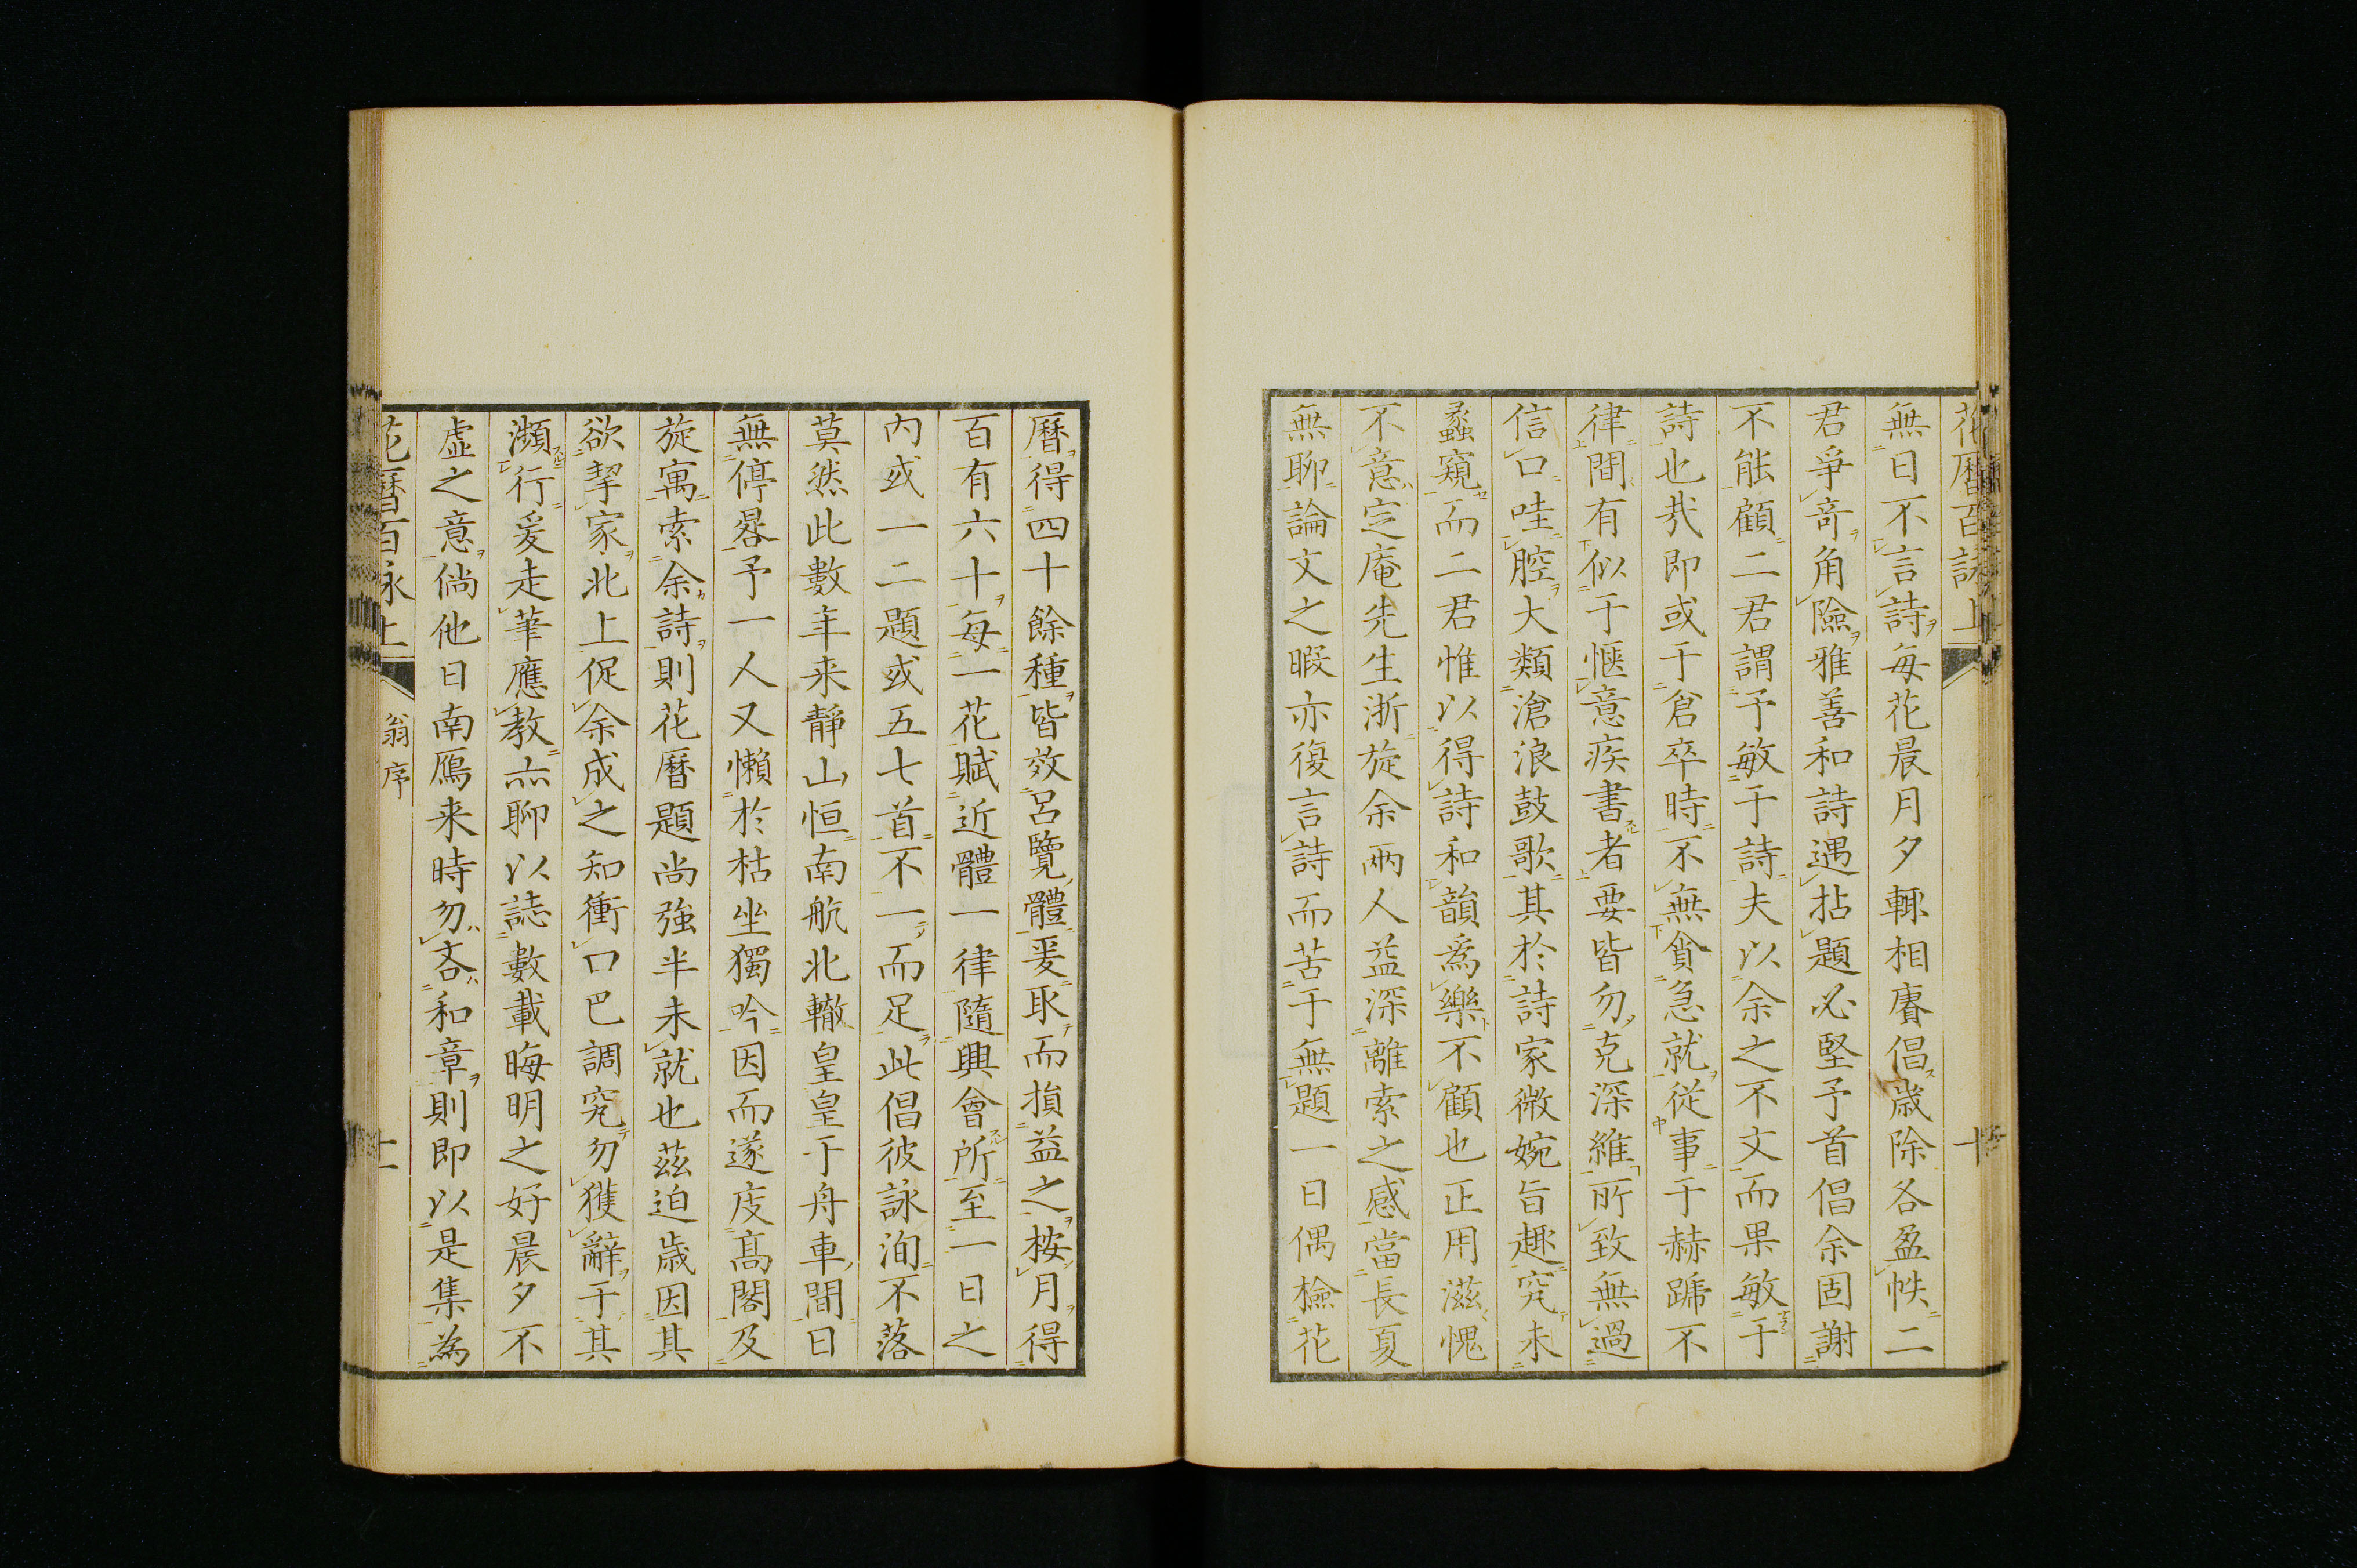 花曆百詠上
無日不言詩每花晨月夕輙相賡倡歳除各盈帙二
君爭竒角險雅善和詩遇拈題必堅予首倡余固謝
不能顧二君謂予敏于詩夫以余之不文而果敏于
詩也㢤即或于倉卒時不無貪急就從事于赫蹏不
律間有似于愜意疾書者要皆勿克深維所致無過
信口哇腔大類滄浪鼓歌其於詩家微婉旨趣究未
蠡窺而二君惟以得詩和韻為樂不顧也正用滋愧
不意定庵先生浙旋余兩人益深離索之感當長夏
無聊論文之暇亦復言詩而苦于無題一日偶檢花
曆得四十餘種皆效呂覽體爰取而損益之桉月得
百有六十每一花賦近體一律隨興會所至一日之
内或一二題或五七首不一而足此倡彼詠洵不落
莫然此數年来靜山恒南航北轍皇皇于舟車間日
無停晷予一人又懶於枯坐獨吟因而遂庋髙閣及
旋寓索余詩則花曆題尚強半未就也茲迫歳因其
欲挈家北上促余成之知衝口巴調究勿獲辭于其
瀕行爰走筆應教亦聊以誌數載晦明之好晨夕不
虛之意倘他日南鴈来時勿吝和章則即以是集為
花曆百詠上
翁序